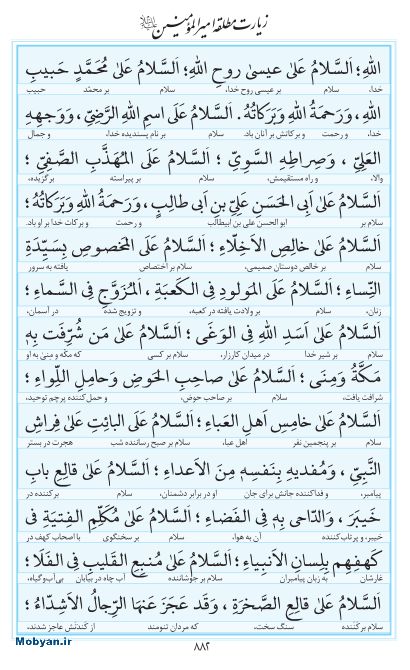 زیارت مطلقه امیرالمؤمنین علیه‌السلام
اللهِ؛ اَلسَّلامُ عَلیٰ عیسیٰ روحِ اللهِ؛ اَلسَّلامُ عَلیٰ مُحَمَّدٍ حَبیبِ
خدا، سلام بر عیسی روح خدا، سلام بر محمّد حبیب
اللهِ، وَرَحمَةُ اللهِ وَبَرَکاتُهُ. اَلسَّلامُ عَلَی اسمِ اللهِ الرَّضِیِّ، وَوَجهِهِ
خدا، و رحمت و برکاتش بر آنان باد. سلام بر نام پسندیده خدا، و جمال
العَلِیِّ، وَصِراطِهِ السَّوِیِّ؛ اَلسَّلامُ عَلَی المُهَذَّبِ الصَّفِیِّ؛
والا، و راه مستقیمش، سلام بر پیراسته برگزیده،
اَلسَّلامُ عَلیٰ اَبِی الحَسَنِ عَلِیِّ بنِ اَبی طالِبٍ، وَرَحمَةُ اللهِ وَبَرَکاتُهُ؛
سلام بر ابو الحسن علی بن ابیطالب و رحمت و برکات خدا بر او باد.
اَلسَّلامُ عَلیٰ خالِصِ الاَخِلّاءِ؛ اَلسَّلامُ عَلَی المَخصوصِ بِسَیِّدَةِ
سلام بر خالص دوستان صمیمی، سلام بر اختصاص یافته به سرور
النِّساءِ؛ اَلسَّلامُ عَلَی المَولودِ فِی الکَعبَةِ، اَلمُزَوَّجِ فِی السَّماءِ؛
زنان، سلام بر ولادت یافته در کعبه، و تزویج شده در آسمان،
اَلسَّلامُ عَلیٰ اَسَدِ اللهِ فِی الوَغیٰ؛ اَلسَّلامُ عَلیٰ مَن شُرِّفَت بِهِ
سلام بر شیر خدا در میدان کارزار، سلام بر کسی که مکّه و منیٰ به او
مَکَّةُ وَمِنیٰ؛ اَلسَّلامُ عَلیٰ صاحِبِ الحَوضِ وَحامِلِ اللِّواءِ؛
شرافت یافت، سلام بر صاحب حوض، و حمل کننده پرچم توحید،
اَلسَّلامُ عَلیٰ خامِسِ اَهلِ العَباءِ؛ اَلسَّلامُ عَلَی البائِتِ عَلیٰ فِراشِ
سلام بر پنجمین نفر اهل عبا، سلام بر صبح رساننده شب هجرت در بستر
النَّبِیِّ، وَمُفدیهِ بِنَفسِهِ مِنَ الاَعداءِ؛ اَلسَّلامُ عَلیٰ قالِعِ بابِ
پیامبر، و فدا کننده جانش برای جان او در برابر دشمنان، سلام بر کننده در
خَیبَرَ، وَالدّاحی بِهِ فِی الفَضاءِ؛ اَلسَّلامُ عَلیٰ مُکَلِّمِ الفِتیَةِ فی
خیبر، و پرتاب کننده آن به هوا، سلام بر سخنگوی با اصحاب کهف در
کَهفِهِم بِلِسانِ الاَنبِیاءِ؛ اَلسَّلامُ عَلیٰ مُنبِعِ القَلیبِ فِی الفَلا؛
غارشان به زبان پیامبران سلام بر جوشاننده آب چاه در بیابان بی‌آب‌وگیاه،
اَلسَّلامُ عَلیٰ قالِعِ الصَّخرَةِ، وَقَد عَجَزَ عَنهَا الرِّجالُ الاَشِدّاءُ؛
سلام بر کننده سنگ سخت، که مردان تنومند از کندنش عاجز شدند.
۸۸۲
Mobyan.ir